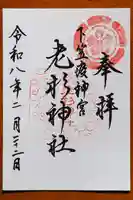 奉拝
下笠 神宮
老杉神社
令和八年二月二十二日